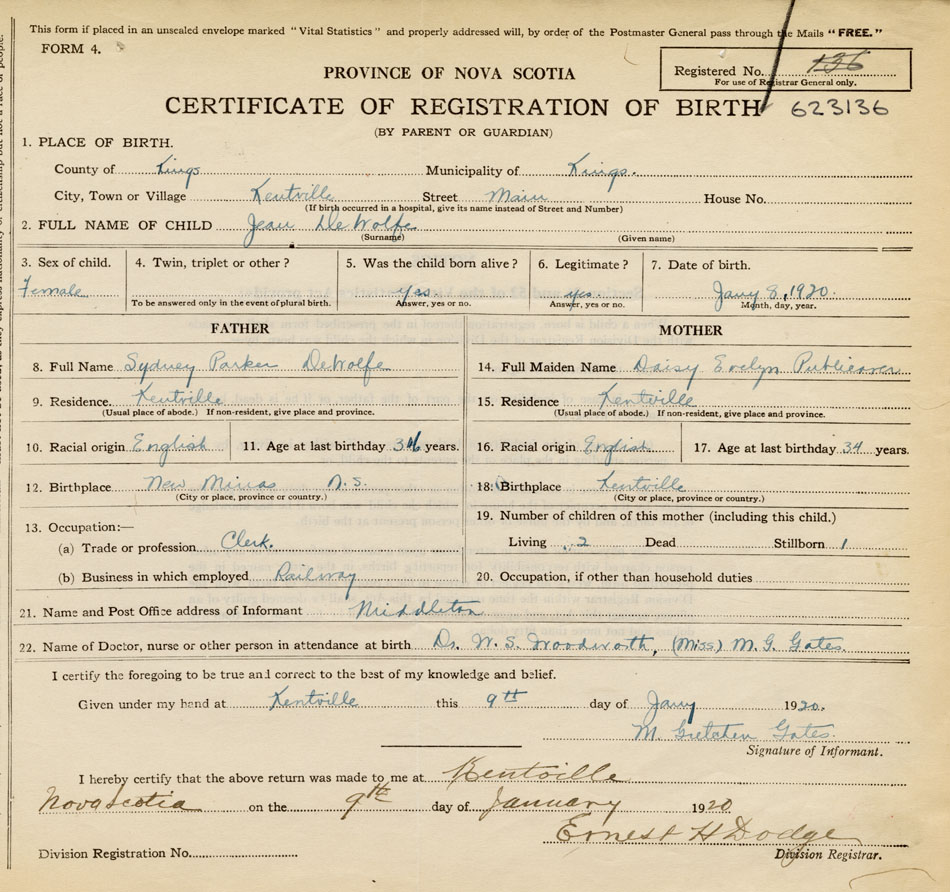 This form if placed in an unsealed envelope marked "Vital Statistics" and properly addressed will, by order of the Postmaster General pass through the Mails "FREE."
FORM 4.
Registered No. 136
For use of Registrar General only.
PROVINCE OF NOVA SCOTIA
CERTIFICATE OF REGISTRATION OF BIRTH 623136
(BY PARENT OR GUARDIAN)
1. PLACE OF BIRTH.
County of Kings Municipality of Kings.
City, Town or Village Kentville Street Main House No.
(If birth occurred in a hospital, give its name instead of Street and Number)
2. FULL NAME OF CHILD Jean DeWolfe
(Surname) (Given name)
3. Sex of child. 4. Twin, triplet or other? 5. Was the child born alive? 6. Legitimate? 7. Date of birth.
Female yes. yes. Jany 8, 1920.
To be answered only in the event of plural birth. Answer, yes or no. Answer, yes or no. Month, day, year.
FATHER MOTHER
8. Full Name Sydney Parker DeWolfe 14. Full Maiden Name Daisy Evelyn Publicover
9. Residence. Kentville 15. Residence Kentville
(Usual place of abode.) If non-resident, give place and province. (Usual place of abode.) If non-resident, give place and province.
10. Racial origin English 11. Age at last birthday years. 16. Racial origin English 17. Age at last birthday 34 years.
12. Birthplace New Minas N.S. 18. Birthplace Kentville
(City or place, province or country.) (City or place, province or country.)
19. Number of children of this mother (including this child.)
13. Occupation:—
(a) Trade or profession Clerk. Living 2 Dead Stillborn 1
(b) Business in which employed Railway 20. Occupation, if other than household duties
21. Name and Post Office address of Informant Middleton
22. Name of Doctor, nurse or other person in attendance at birth Dr. W. S. Woodworth, (Miss) M. G. Gates.
I certify the foregoing to be true and correct to the best of my knowledge and belief.
Given under my hand at Kentville this 9th day of Jany 1920.
M. Gretchen Gates.
Signature of Informant.
I hereby certify that the above return was made to me at Kentville
Nova Scotia on the 9th day of January 1920
Ernest H Dodge
Division Registration No. Division Registrar.